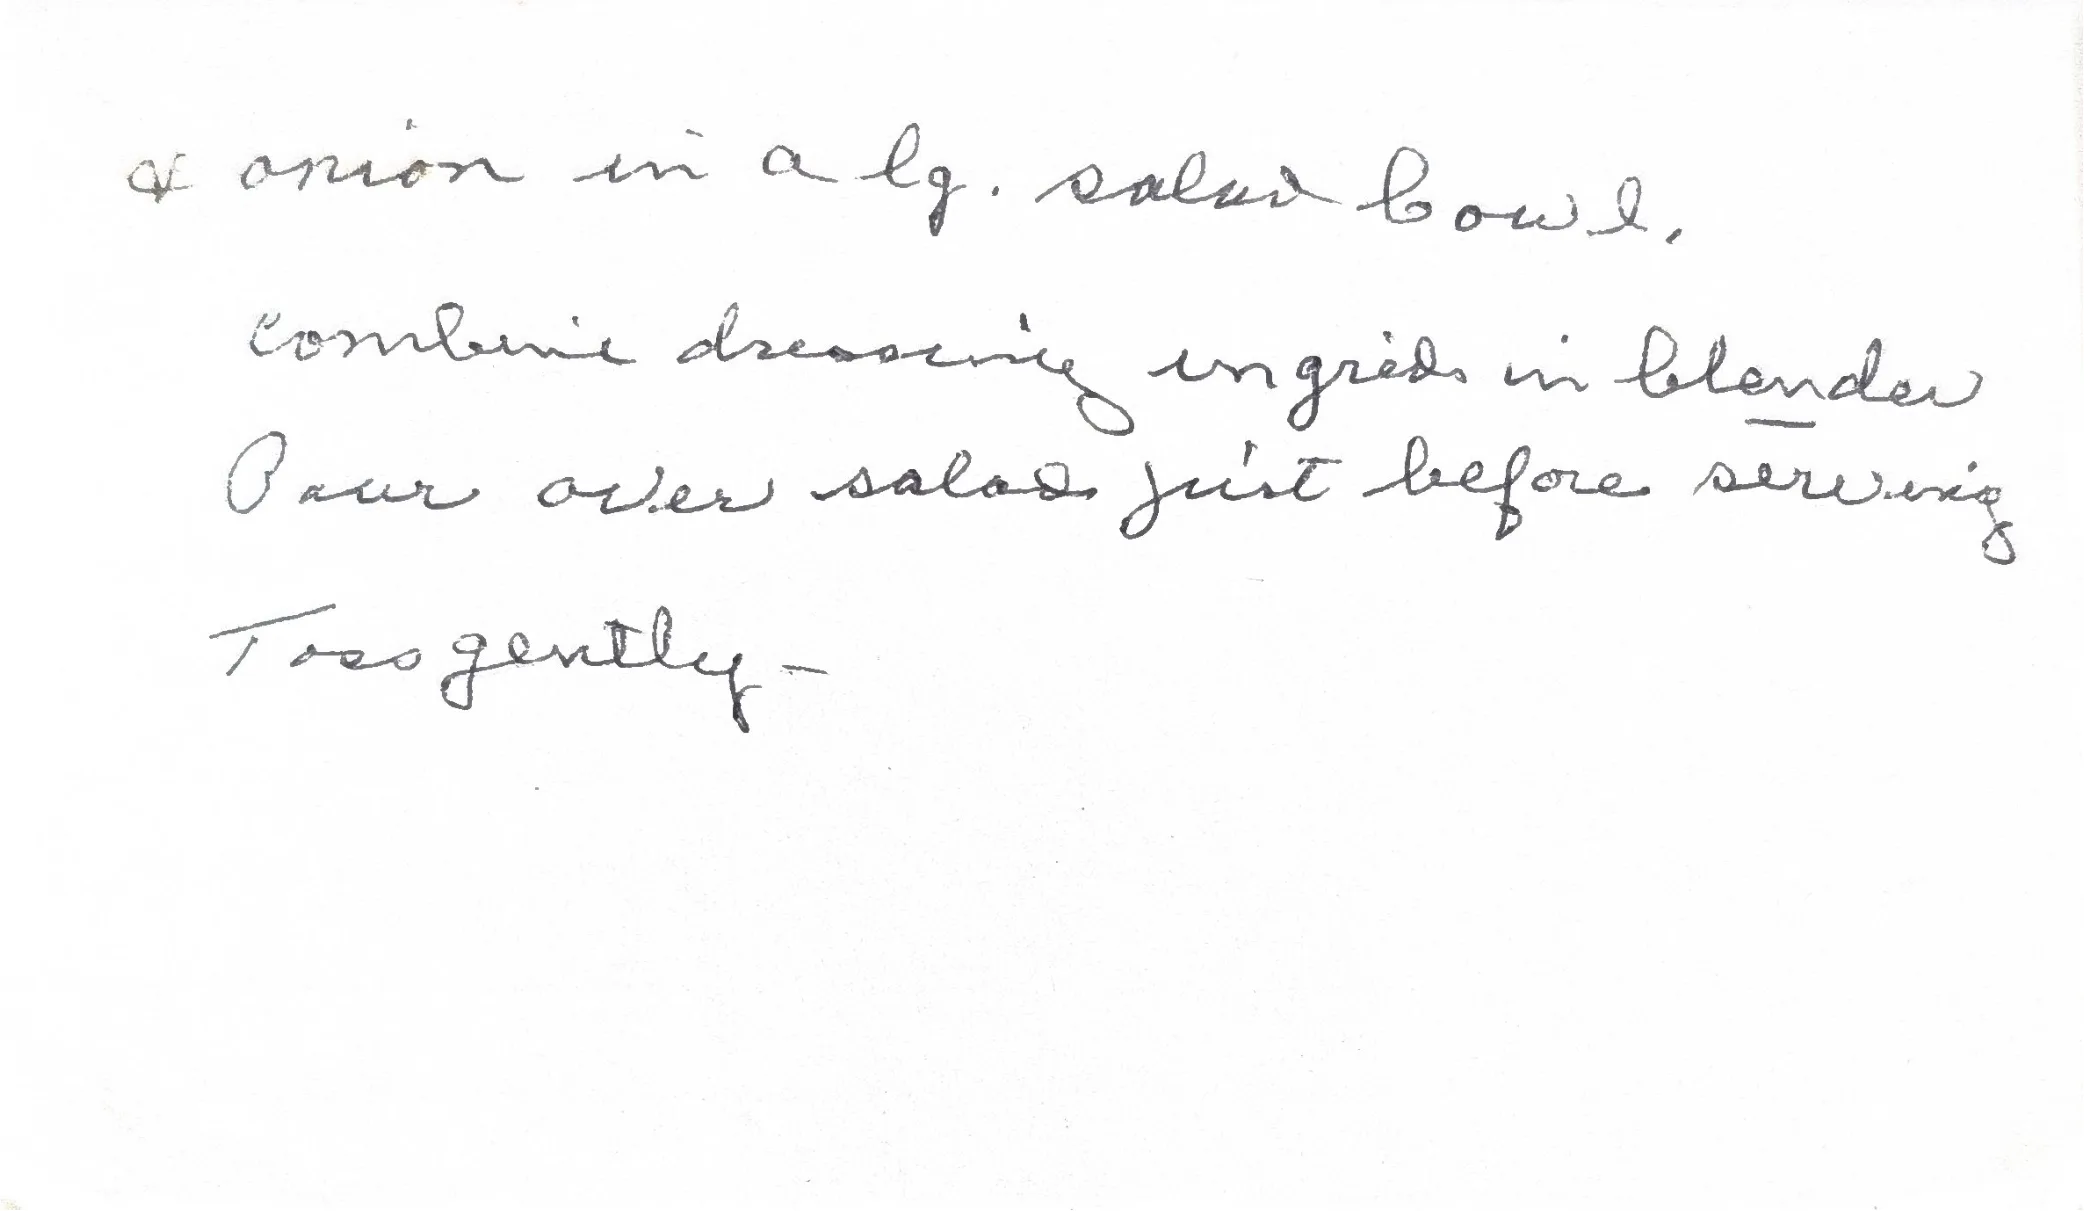 & onion in a lg. salad bowl.
combine dressing ingreds in blender
Pour over salad just before serving
Toss gently -